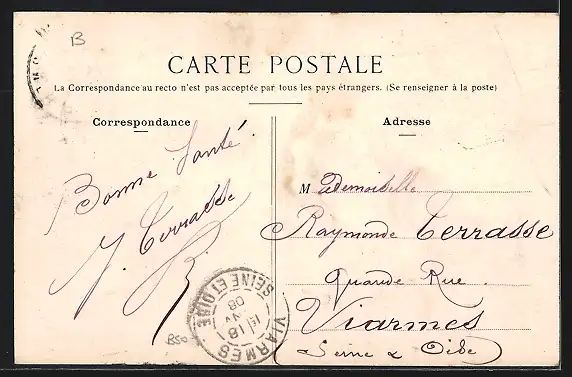 B
CARTE POSTALE
La Correspondance au recto n'est pas acceptée par tous les pays étrangers. (Se renseigner à la poste)
Correspondance
Bonne Santé.
J. Terrasse
Adresse
Mademoiselle
Raymonde Terrasse
Grande Rue.
Viarmes
Seine & Oise
VIARMES
SEINE ET OISE
18
08
B50